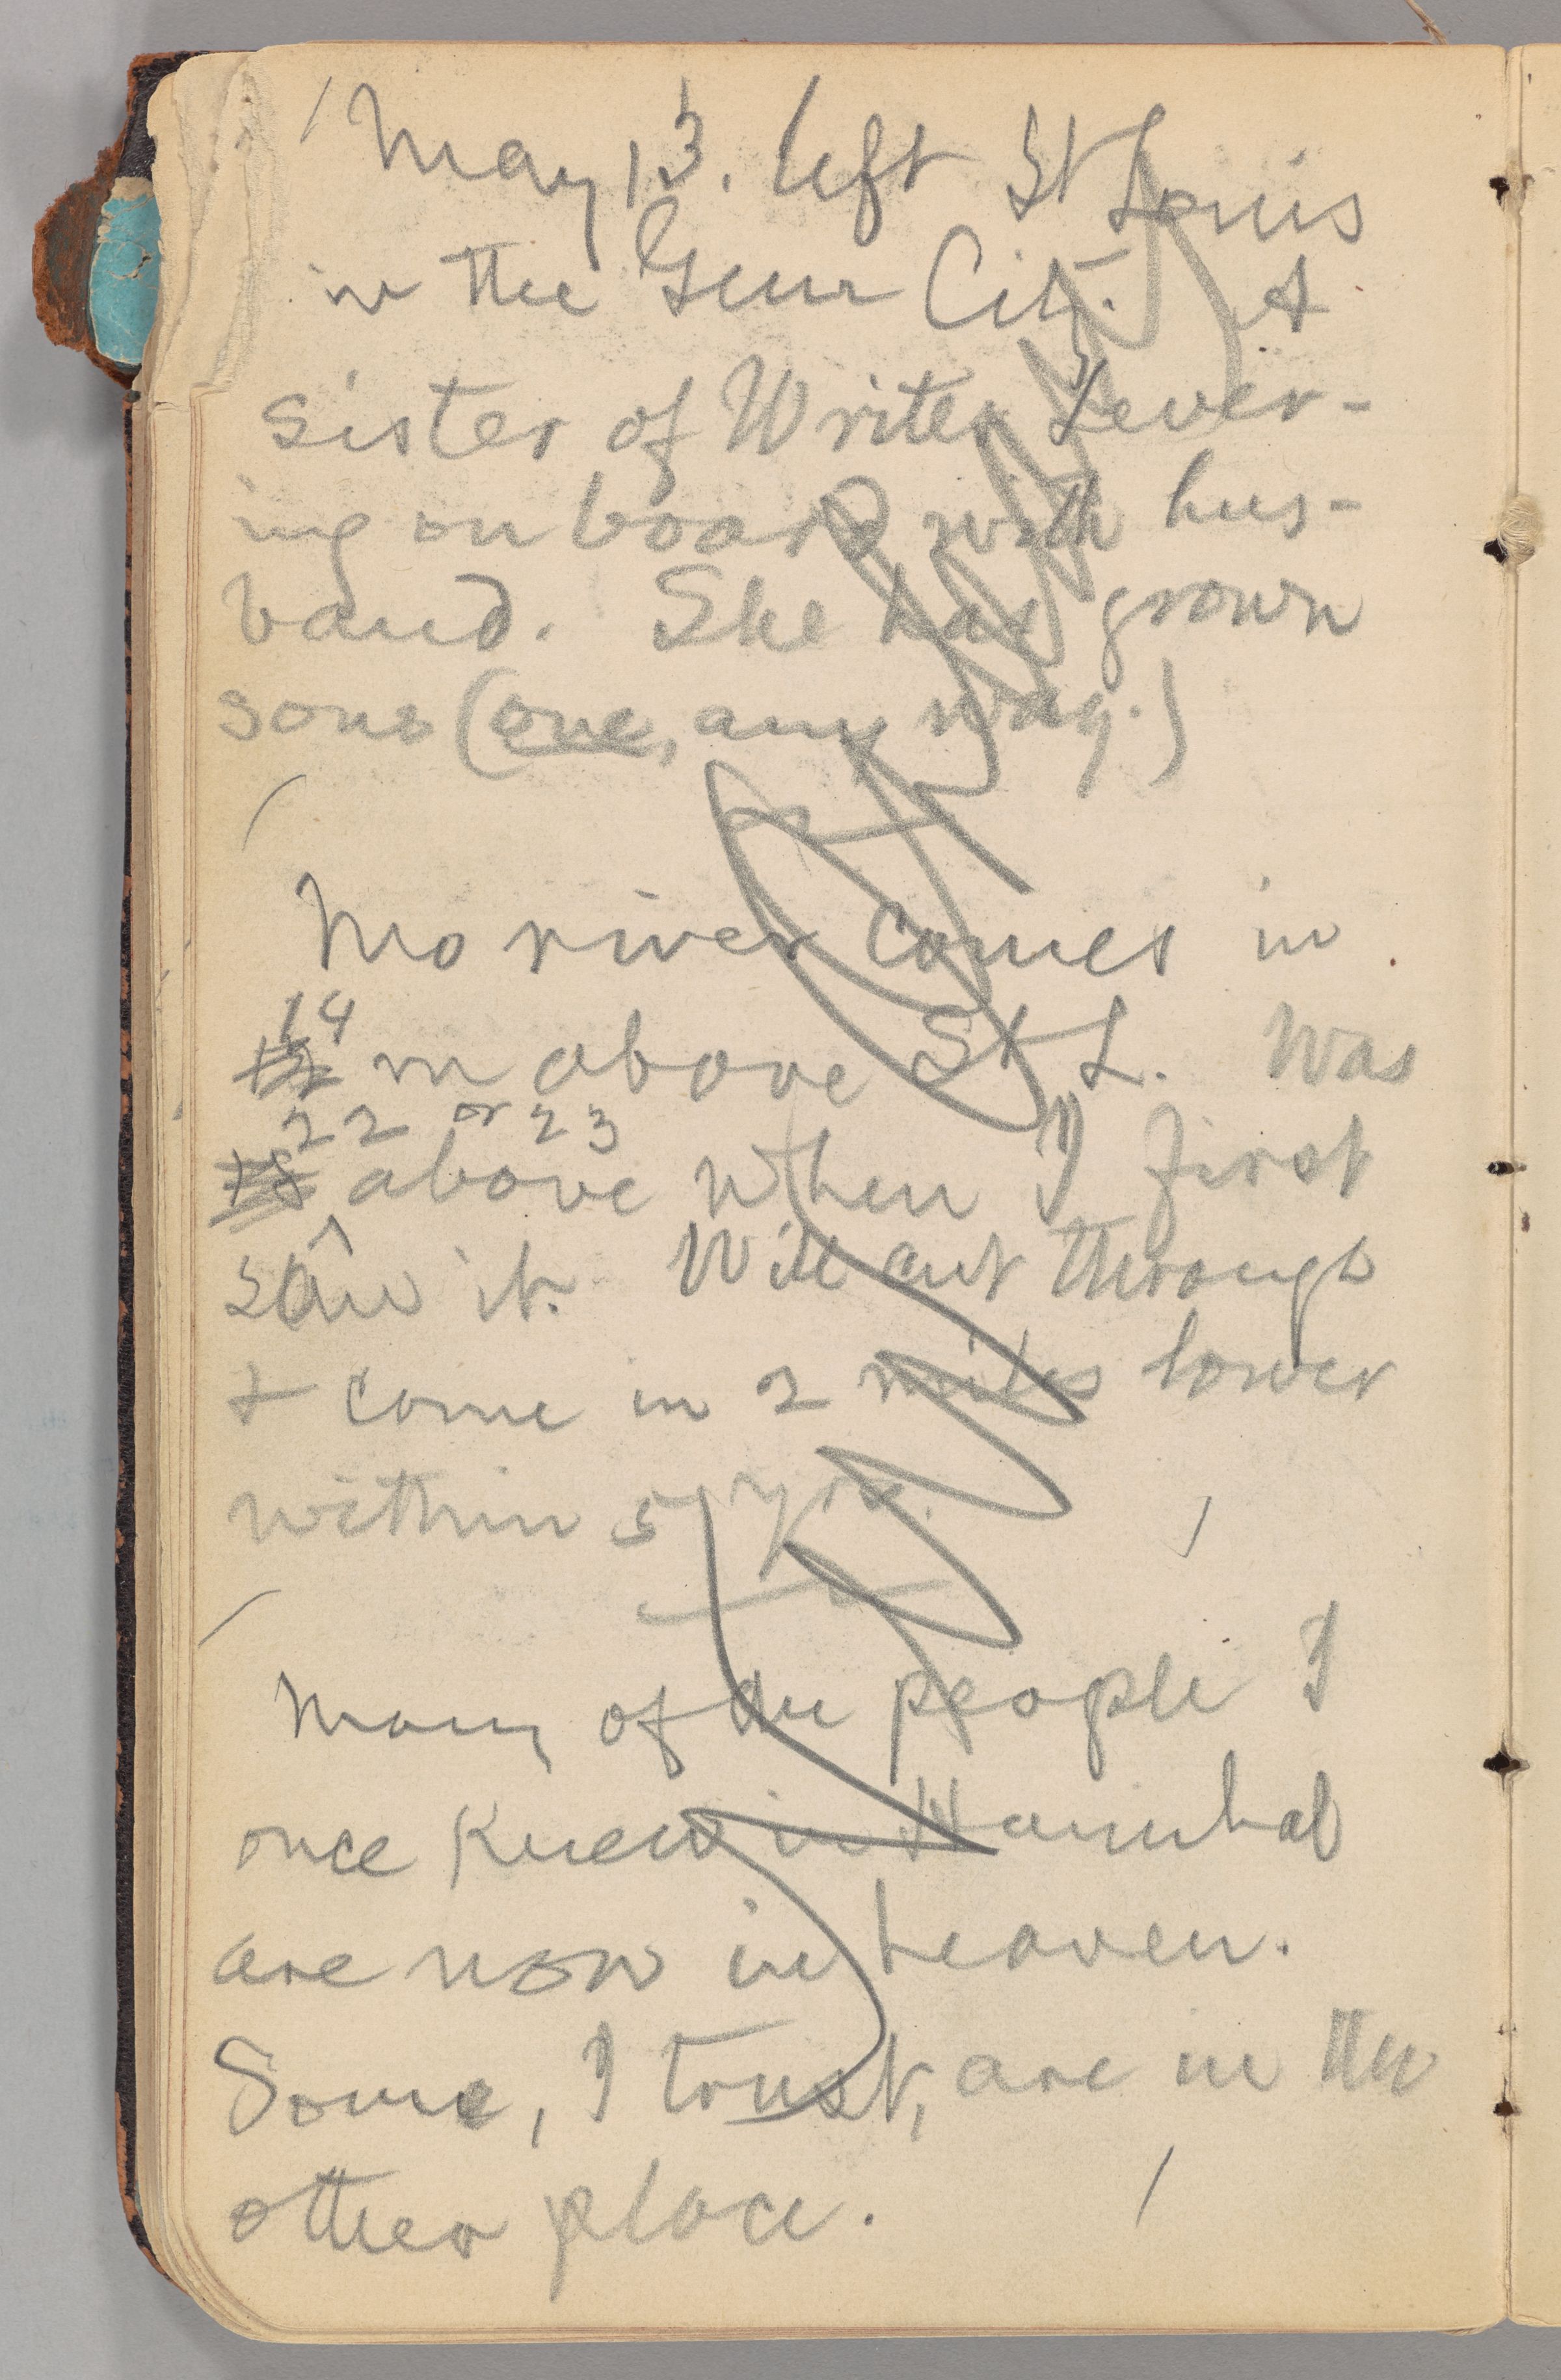 May 13. left St Louis
in the Gem City. A
sister of Writer Lever-
ing on board with hus-
band. She has grown
sons (one, any way.)
Mo river comes in
14
12 m above St L. Was
22 or 23
18 above when I first
saw it. Will cut through
& come in 2 miles lower
within 5 yrs.
Many of the people I
once knew in Hannibal
are now in heaven.
Some, I trust, are in the
other place.